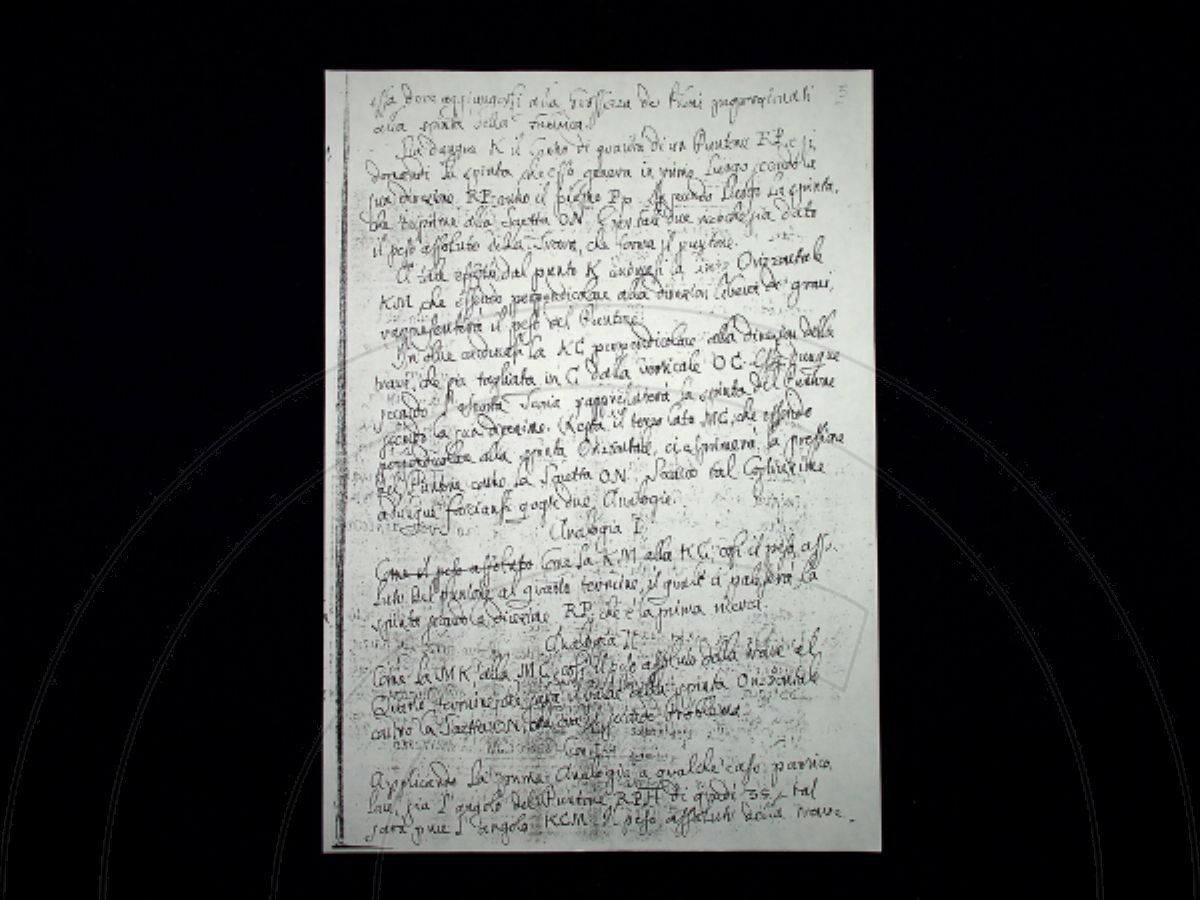 essa deve aggiungersi alla grossezza de Piedi proporzionali
alla spinta della
Sia dunque K il Centro di gravità di un Puntone RP, e si
domandi la spinta che esso genera in primo luogo secondo la
sua direzione RP contro il piedino Pp. In secondo luogo la spinta,
che imprime alla Saetta ON. E per tali due ricerche sia dato
il peso assoluto della Trave, che forma il puntone.
A tale effetto dal punto K conducasi la Orizzontale
KM che essendo perpendicolare alla direzion libera de' gravi,
rappresenterà il peso del Puntone.
In oltre conducasi la KC perpendicolare alla direzion della
trave, che sia tagliata in C dalla verticale OC. Essa dunque
secondo l'esposta Teoria rappresenterà la spinta del Puntone
secondo la sua direzione. Resta il terzo lato MC, che essendo
perpendicolare alla spinta Orizontale, ci esprimerà la pressione
del Puntone contro la Saetta ON. Secondo tal
adunque facciansi queste due Analogie.
Analogia I
Come il peso assoluto Come la KM alla KC, così il peso asso-
luto del puntone al quarto termine, il quale ci paleserà la
spinta secondo la direzione RP, che è la prima ricerca.
Analogia II
Come la MK alla MC, così il peso assoluto della trave al
Quarto termine, che sarà il valore della spinta Orizontale
contro la Saetta ON, che era il secondo Problema.
Applicando la prima Analogia a qualche caso partico-
lare, sia l'angolo del Puntone RPH di gradi 35, tal
sarà pure l'angolo KCM. Il peso assoluto della trave